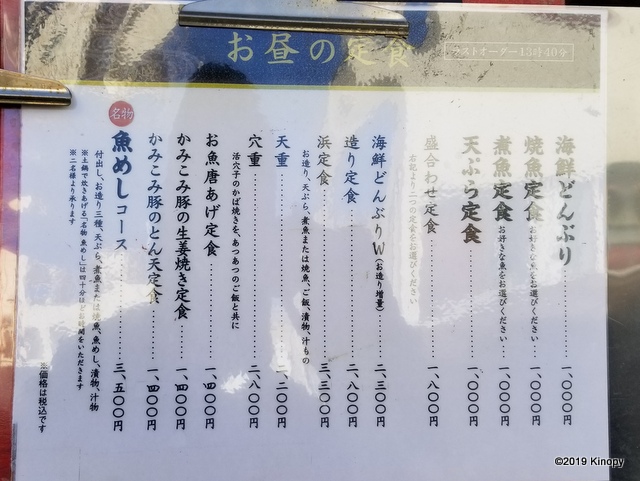 お昼の定食
ラストオーダー13時40分
海鮮どんぶり……一、〇〇〇円
焼魚定食 お好きな魚をお選びください……一、〇〇〇円
煮魚定食 お好きな魚をお選びください……一、〇〇〇円
天ぷら定食……一、〇〇〇円
盛合わせ定食……一、八〇〇円
右記より二つの定食をお選びください
海鮮どんぶりW(お造り増量)……二、三〇〇円
造り定食……二、八〇〇円
浜定食……三、三〇〇円
お造り、天ぷら、煮魚または焼魚、ご飯、漬物、汁もの
天重……二、二〇〇円
穴重……二、八〇〇円
活穴子のかば焼きを、あつあつのご飯と共に
お魚唐あげ定食……一、四〇〇円
かみこみ豚の生姜焼き定食……一、四〇〇円
かみこみ豚のとん天定食……一、四〇〇円
名物
魚めしコース……三、五〇〇円
付出し、お造り三種、天ぷら、煮魚または焼魚、魚めし、漬物、汁物
※土鍋で炊きあげる「名物 魚めし」は四十分ほどお時間をいただきます
※二名様より承ります
※価格は税込です
©2019 Kinopy